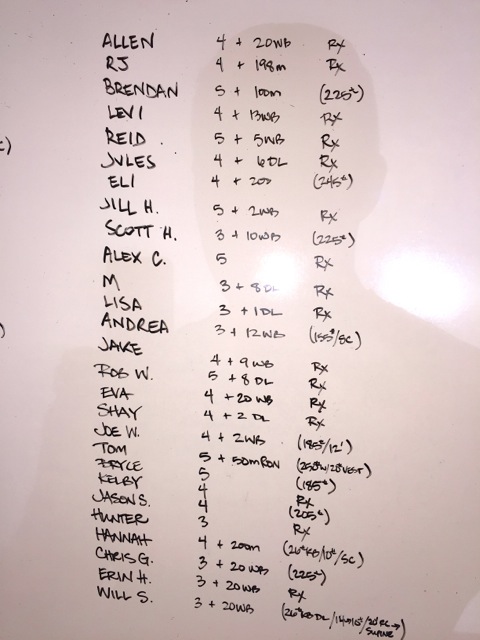 ALLEN 4 + 20WB Rx
RJ 4 + 198m Rx
BRENDAN 5 + 100m (225#)
LEVI 4 + 13WB Rx
REID 5 + 5WB Rx
JULES 4 + 6DL Rx
ELI 4 + (245#)
JILL H. 5 + 2WB Rx
SCOTT H. 3 + 10WB (225#)
ALEX C. 5 Rx
M 3 + 8DL Rx
LISA 3 + 1DL Rx
ANDREA 3 + 12WB (155#/SC)
JAKE 4 + 9WB Rx
ROB W. 5 + 8DL Rx
EVA 4 + 20WB Rx
SHAY 4 + 2DL Rx
JOE W. 4 + 2WB (185#/12')
TOM 5 + 50m ROW (250# W/20# VEST)
BRYCE 5 (185#)
KELBY 4 Rx
JASON S. 4 (205#)
HUNTER 3 Rx
HANNAH 4 + 200m (26#KB/10#/SC)
CHRIS G. 3 + 20WB (225#)
ERIN H. 3 + 20WB Rx
WILL S. 3 + 20WB (26#KB DL/
SUPINE